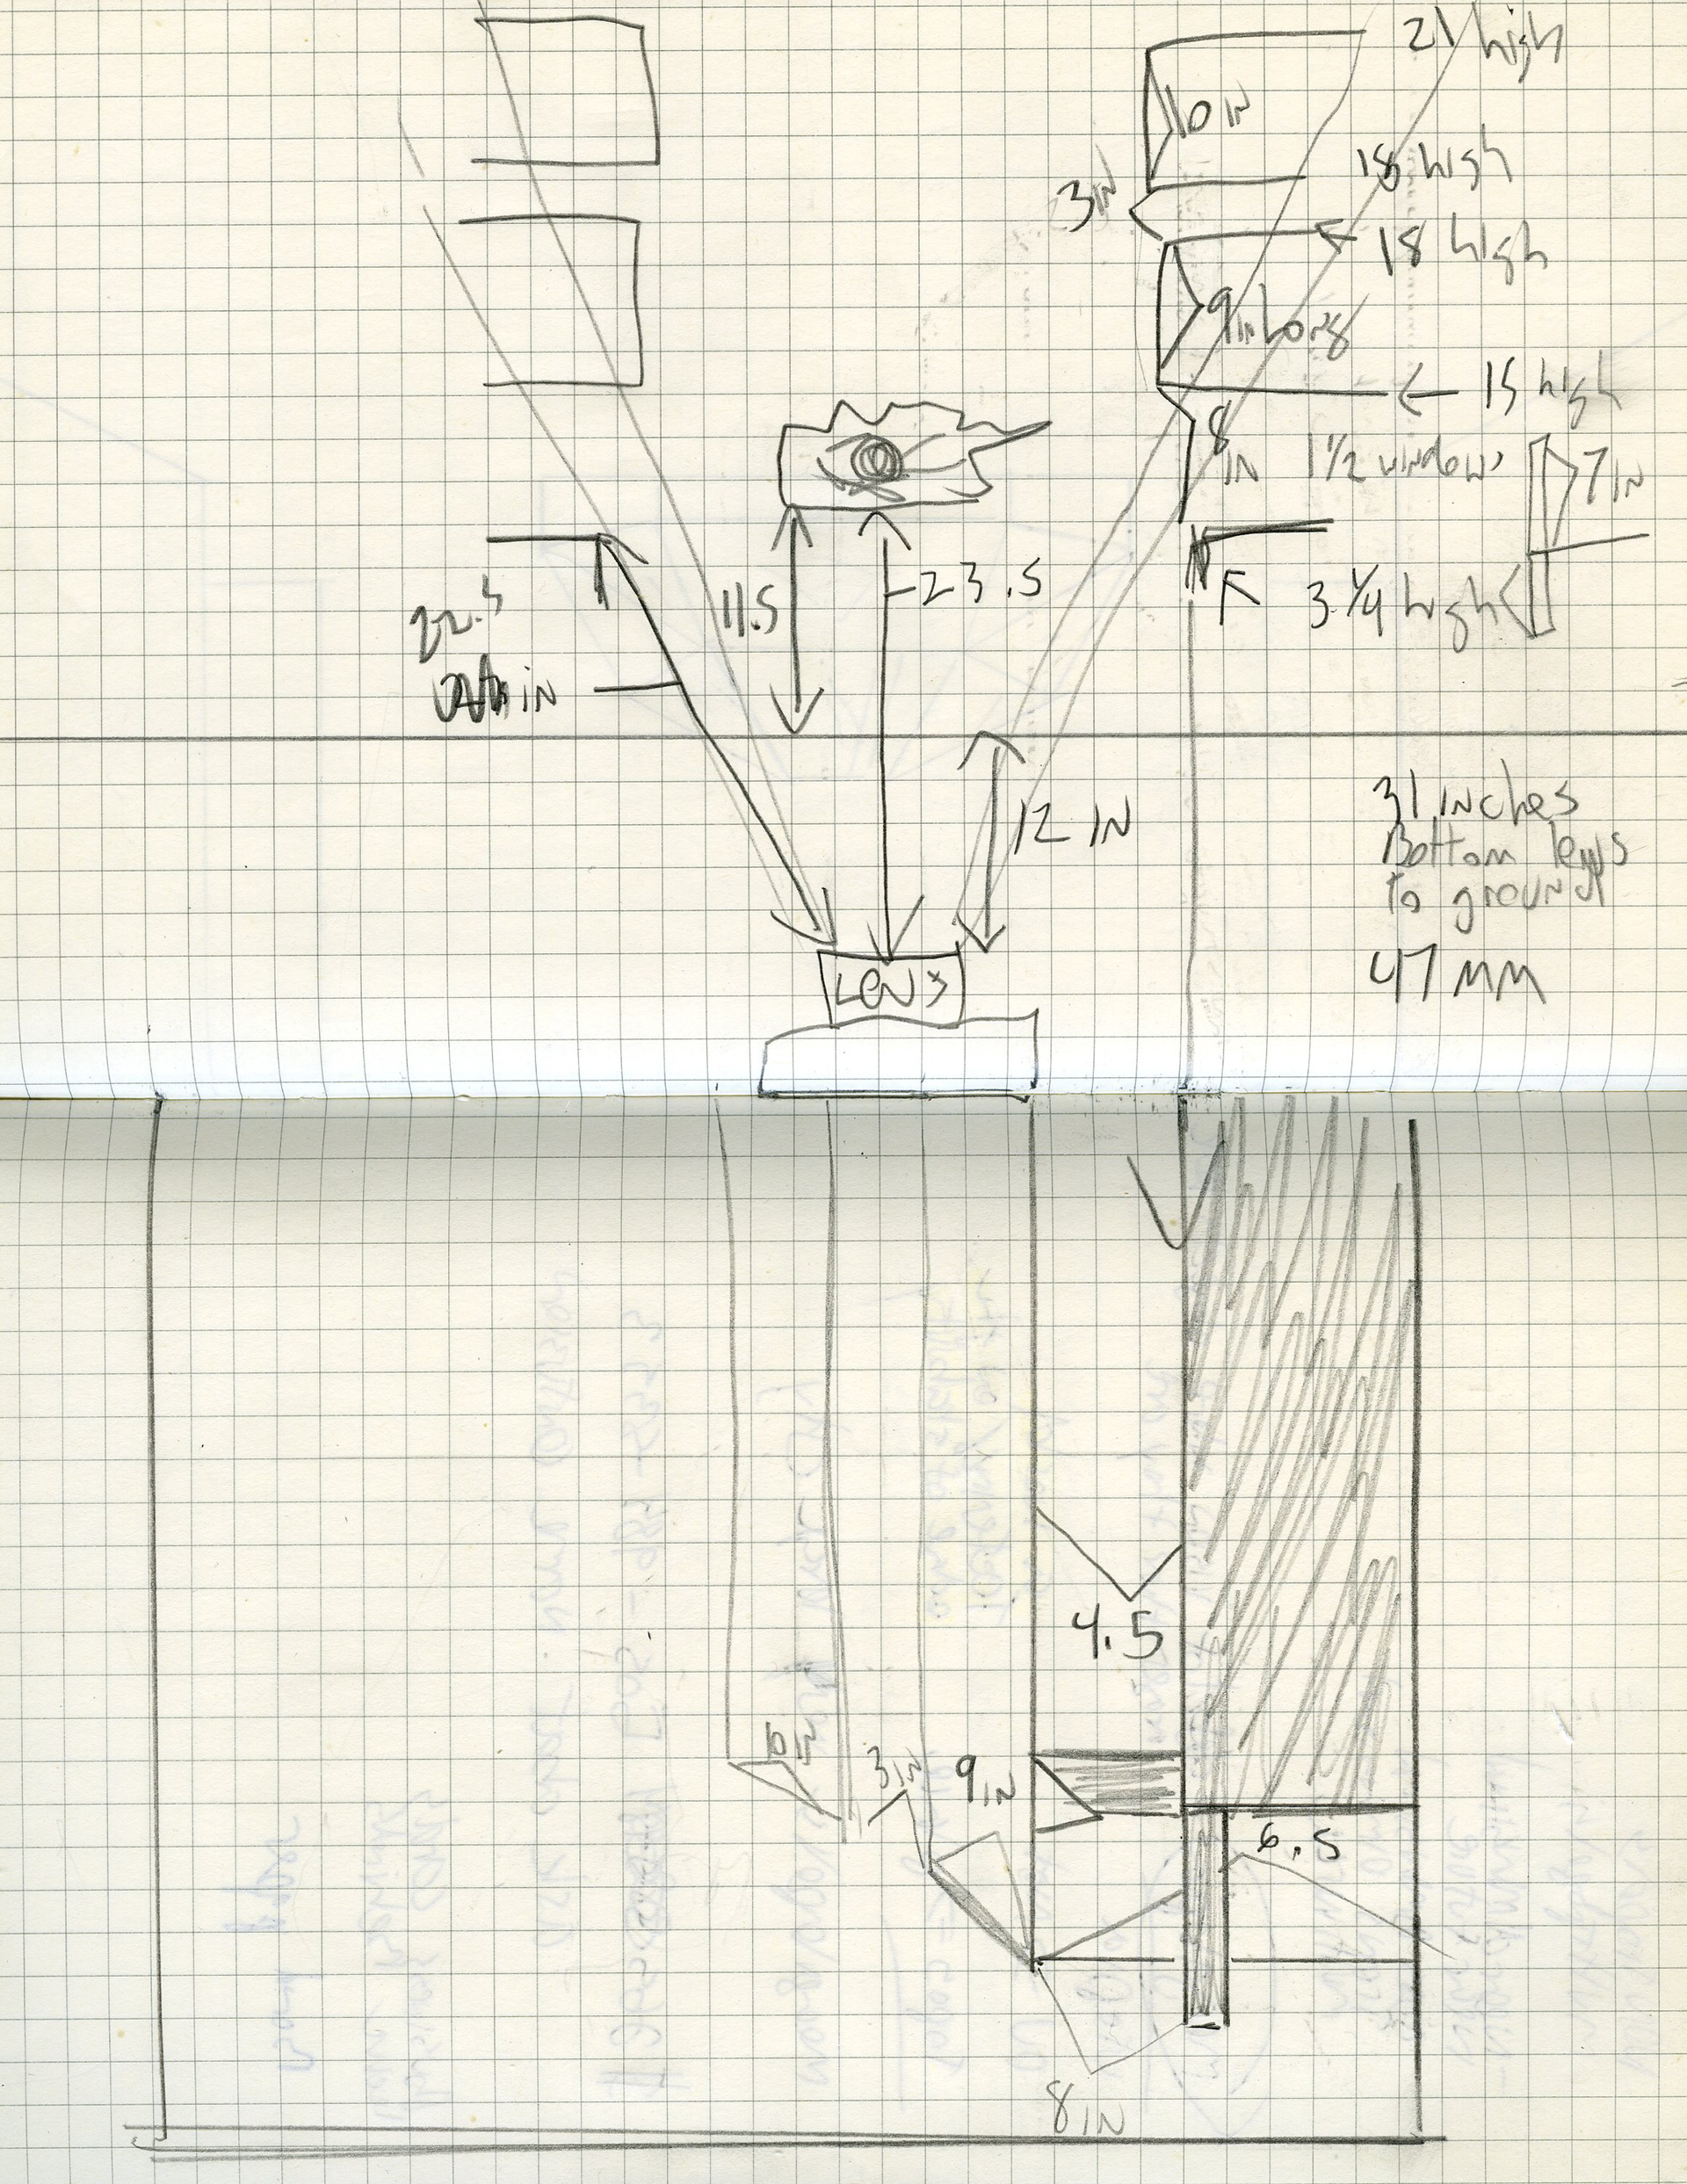 21 high
10 IN
18 high
3 IN
18 high
9 IN Long
15 high
8 IN
1 1/2 windows
7 IN
23.5
11.5
22.5
IN
3 1/4 high
12 IN
31 inches
Bottom lens
to ground
47 mm
Lens
4.5
10 IN
3 IN
9 IN
6.5
8 IN